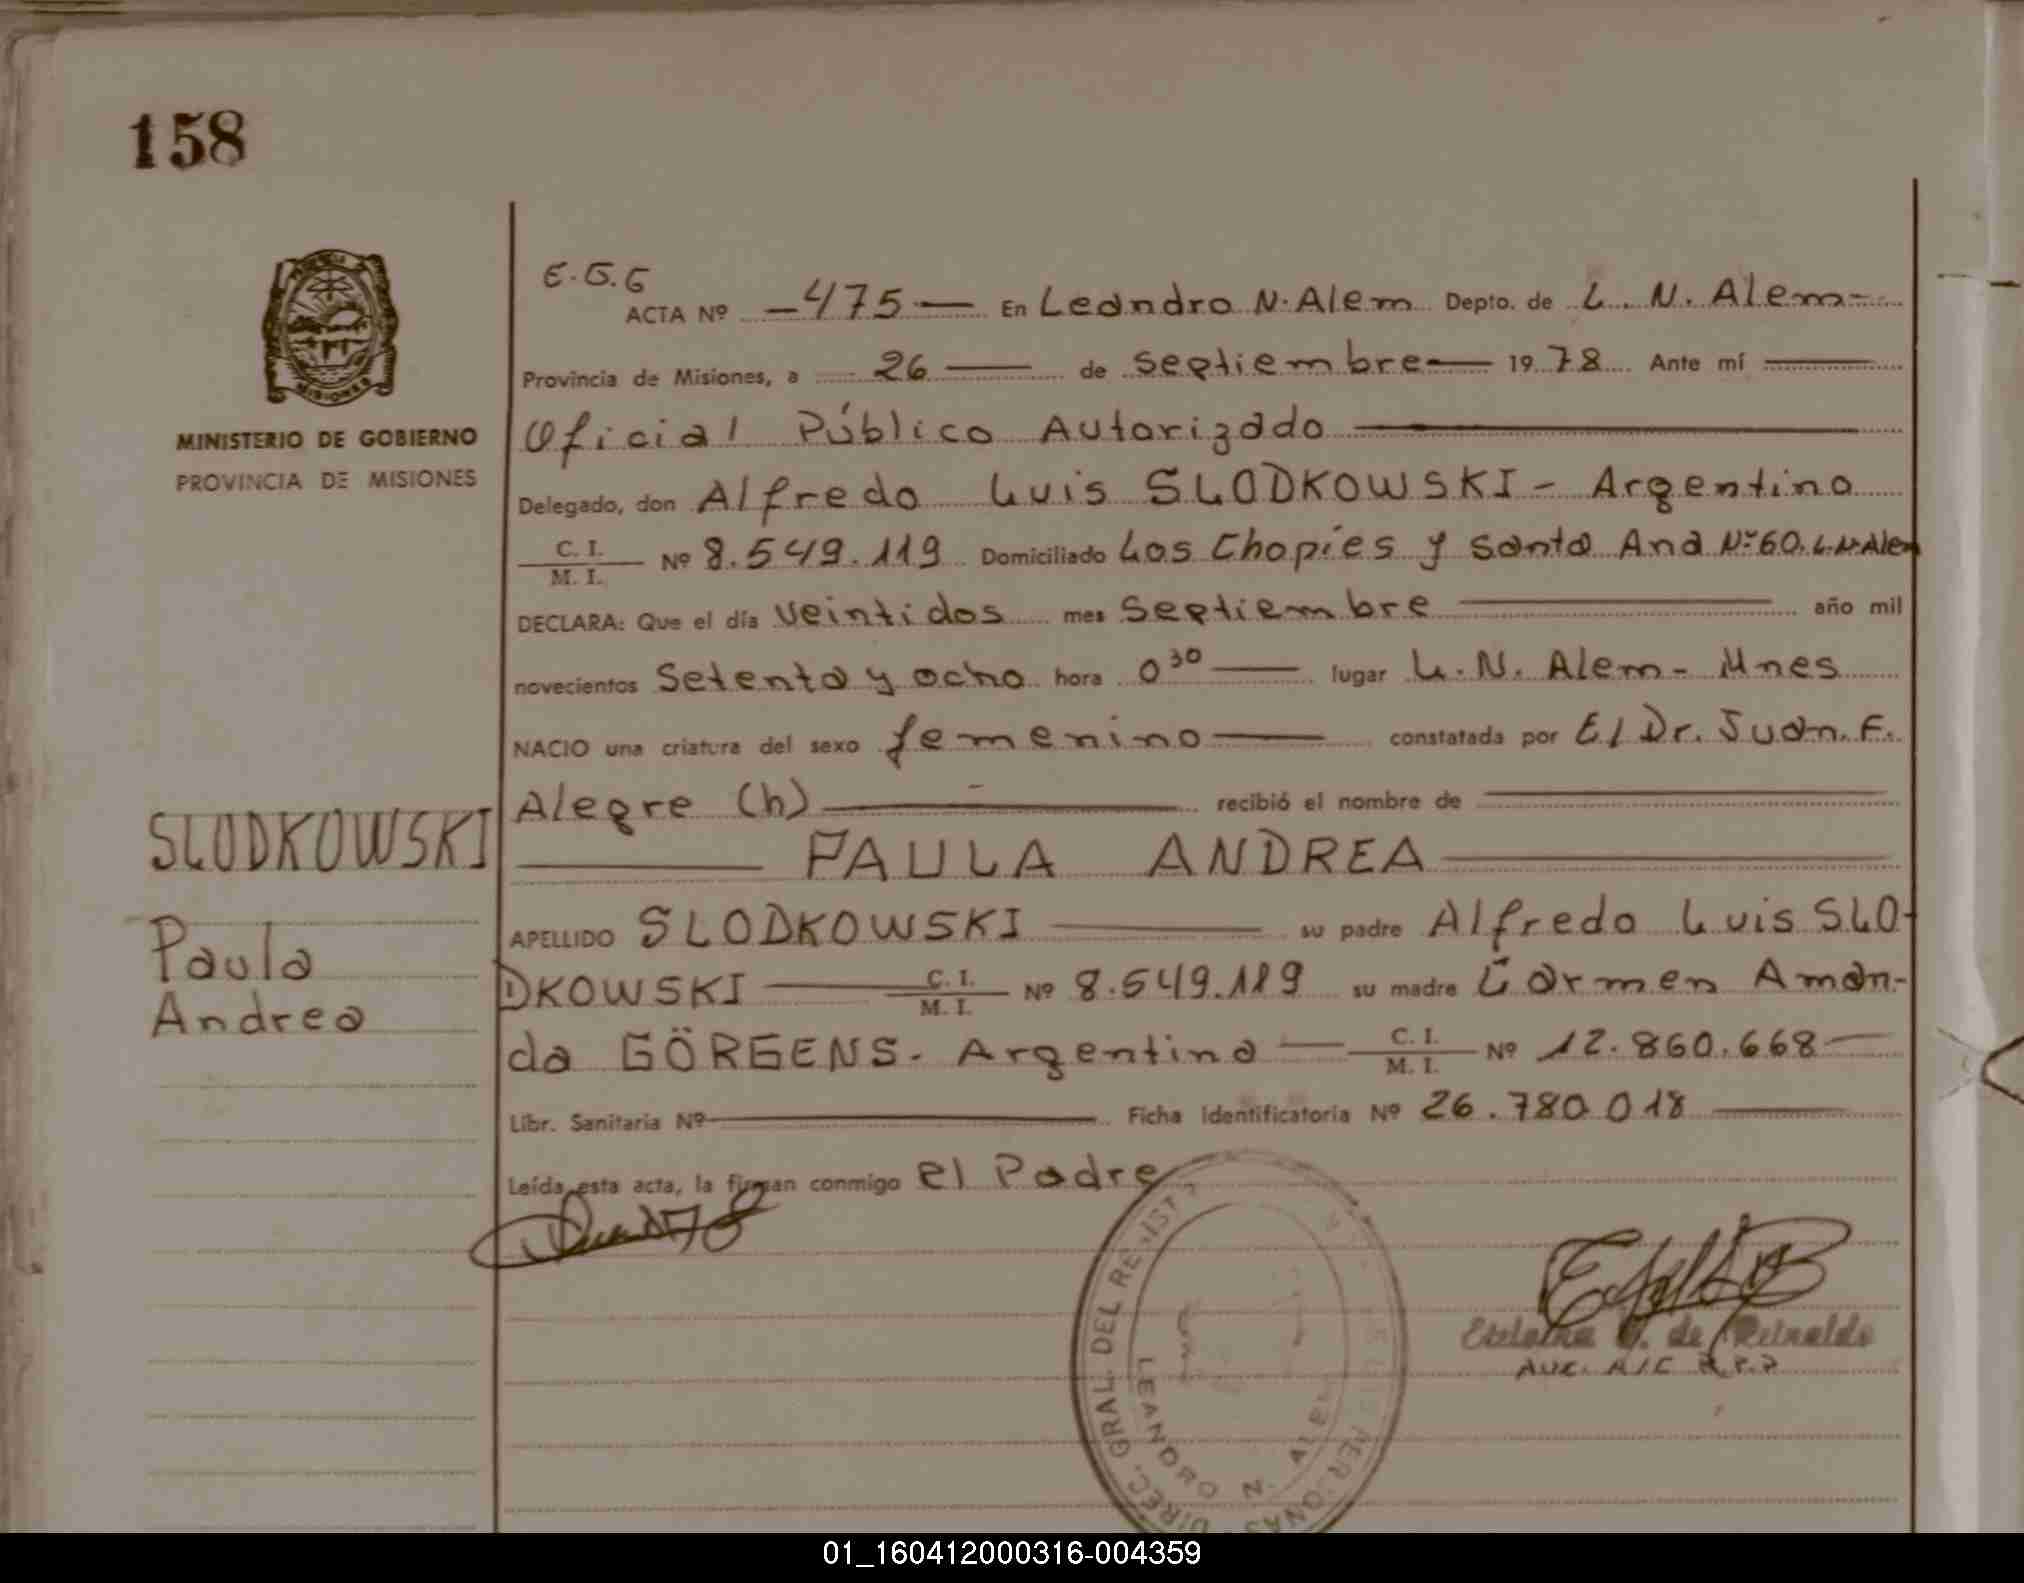 158
MINISTERIO DE GOBIERNO
PROVINCIA DE MISIONES
SLODKOWSKI
Paula
Andrea
E.G.G
ACTA Nº -475- En Leandro N. Alem Depto. de L. N. Alem-
Provincia de Misiones, a 26 de Septiembre 1978 Ante mí
Oficial Público Autorizado
Delegado, don Alfredo Luis SLODKOWSKI - Argentino
C. I.
M. I. Nº 8.549.119 Domiciliado Los Chopies y Santa Ana Nº 60. L.N. Alem
DECLARA: Que el día veintidos mes Septiembre año mil
novecientos Setenta y ocho hora 0 30 lugar L. N. Alem - Mnes
NACIO una criatura del sexo femenino constatada por El Dr. Juan. F.
Alegre (h) recibió el nombre de
PAULA ANDREA
APELLIDO SLODKOWSKI su padre Alfredo Luis SLO-
DKOWSKI C. I.
M. I. Nº 8.549.119 su madre Carmen Aman-
da GÖRGENS. Argentina C. I.
M. I. Nº 12.860.668
Libr. Sanitaria Nº Ficha Identificatoria Nº 26.780.018
Leída esta acta, la firman conmigo el Padre
DIREC. GRAL. DEL REGIST
LEANDRO N. ALEM
de Reinaldo
01_160412000316-004359